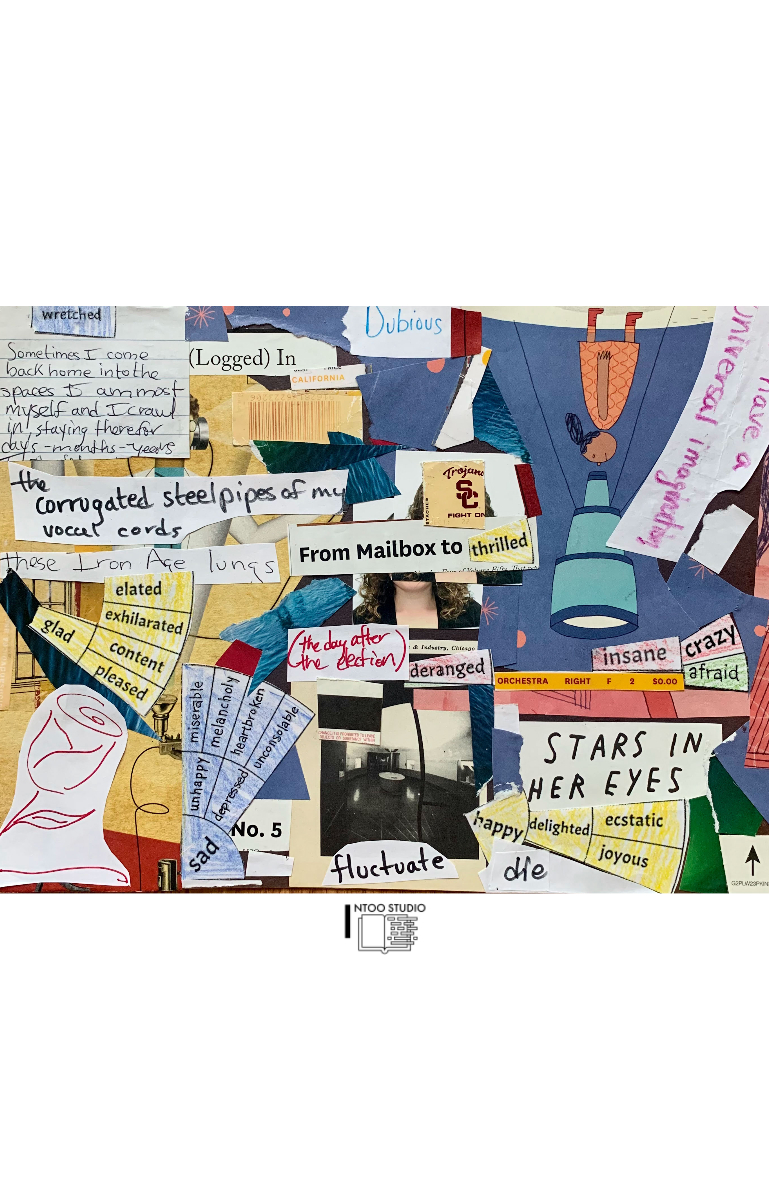 wretched
Sometimes I come
back home into the
spaces I
am most
myself and I crawl
in, staying there for
days - months - years
(Logged) In
CALIFORNIA
Dubious
have a
universal imagination
the
corrugated steel pipes of my
vocal cords
these Iron Age lungs
Trojans
SC
FIGHT ON
From Mailbox to thrilled
elated
exhilarated
glad
content
pleased
(the day after
the election)
& Industry, Chicago
deranged
insane
crazy
afraid
ORCHESTRA RIGHT F 2 $0.00
miserable
melancholy
heartbroken
unconsolable
unhappy
depressed
sad
No. 5
STARS IN
HER EYES
happy
delighted
ecstatic
joyous
fluctuate
die
INTOO STUDIO